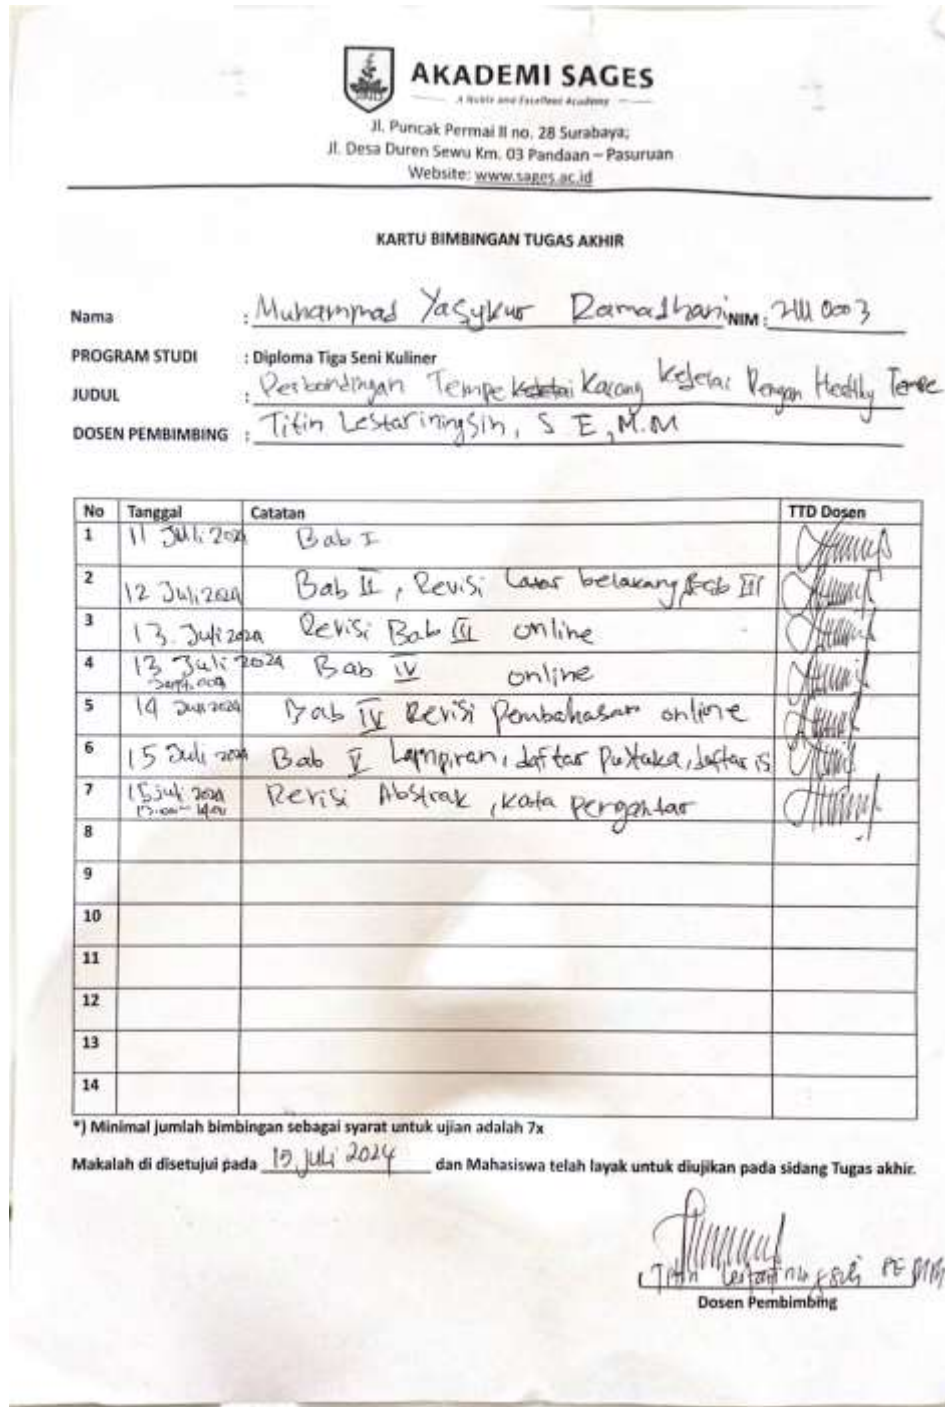 AKADEMI SAGES
A Noble and Excellent Academy
Jl. Puncak Permai II no. 28 Surabaya;
Jl. Desa Duren Sewu Km. 03 Pandaan – Pasuruan
Website: www.sages.ac.id
KARTU BIMBINGAN TUGAS AKHIR
Nama : Muhammad Yasykur Ramadhani NIM :
PROGRAM STUDI : Diploma Tiga Seni Kuliner
JUDUL : Perbandingan Tempe Kacang Kedelai Dengan Healthy Tempe
DOSEN PEMBIMBING : Titin Lestariningsih, S E, M.M
No Tanggal Catatan TTD Dosen
1 11 Juli 2024 Bab I
2 12 Juli 2024 Bab II, Revisi Latar belakang Bab III
3 13 Juli 2024 Revisi Bab III online
4 13 Juli 2024 Bab IV online
5 14 Juli 2024 Bab IV Revisi Pembahasan online
6 15 Juli 2024 Bab V Lampiran, daftar Pustaka, daftar is
7 15 Juli 2024 Revisi Abstrak, kata pengantar
8
9
10
11
12
13
14
*) Minimal jumlah bimbingan sebagai syarat untuk ujian adalah 7x
Makalah di disetujui pada 15 Juli 2024 dan Mahasiswa telah layak untuk diujikan pada sidang Tugas akhir.
Titin Lestariningsih
Dosen Pembimbing